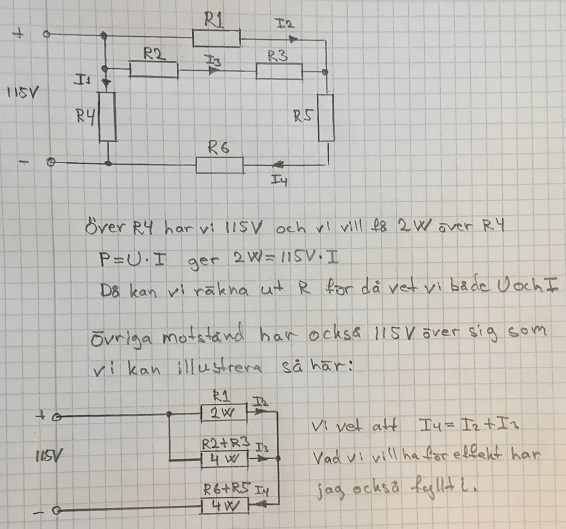 + R1 I2
R2 I3 R3
I1
115V R4 R5
R6
-
I4
över R4 har vi 115V och vi vill få 2W över R4
P=U·I ger 2W=115V·I
Då kan vi räkna ut R för då vet vi både U och I
Övriga motstånd har också 115V över sig som
vi kan illustrera så här:
R1 I2
+ 2W
Vi vet att I4=I2+I3
R2+R3 I3
115V 4W Vad vi vill ha för effekt har
R6+R5 I4
jag också fyllt i.
- 4W